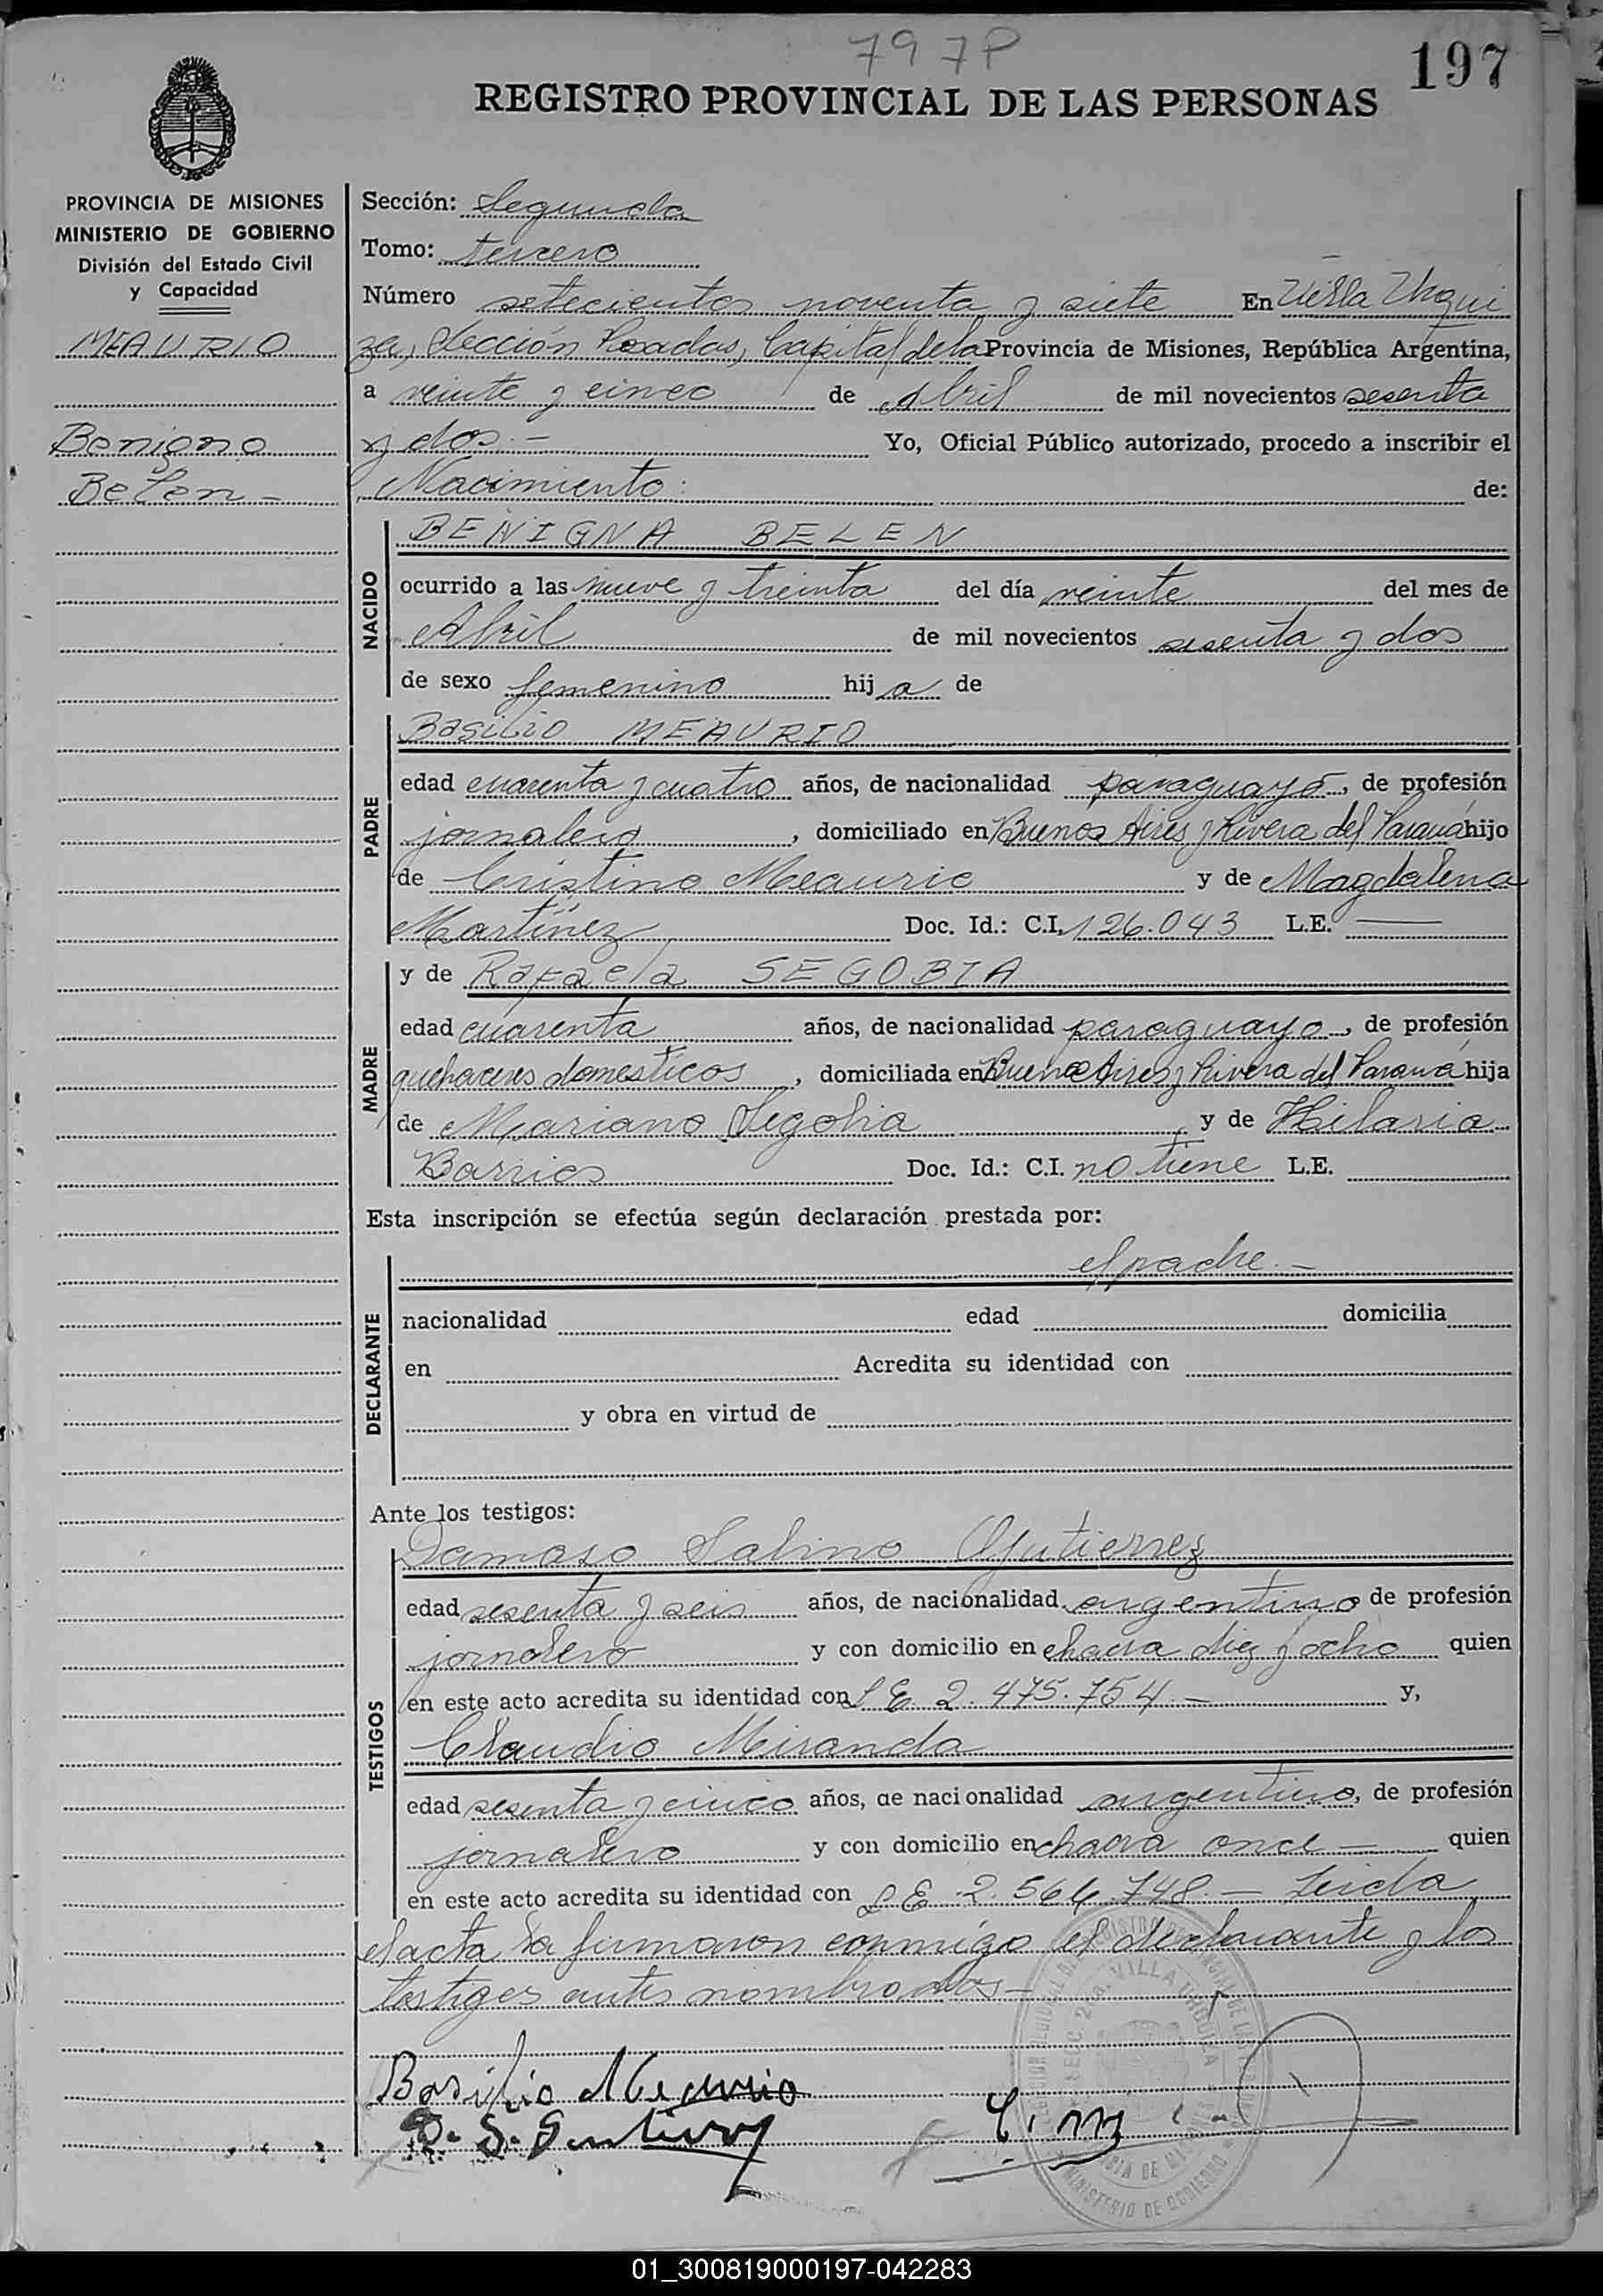 797P
197
REGISTRO PROVINCIAL DE LAS PERSONAS
PROVINCIA DE MISIONES
MINISTERIO DE GOBIERNO
División del Estado Civil
y Capacidad
MEAURIO
Benigno
Belen -
Sección: Segunda
Tomo: tercero
Número setecientos noventa y siete En Villa Urqui
za, Sección Posadas, Capital de la Provincia de Misiones, República Argentina,
a veinte y cinco de Abril de mil novecientos sesenta
y dos.- Yo, Oficial Público autorizado, procedo a inscribir el
Nacimiento: de:
NACIDO
BENIGNA BELEN
ocurrido a las nueve y treinta del día veinte del mes de
Abril de mil novecientos sesenta y dos
de sexo femenino hija de
PADRE
Basilio MEAURIO
edad cuarenta y cuatro años, de nacionalidad paraguayo, de profesión
jornalero, domiciliado en Buenos Aires y Rivera del Paraná hijo
de Cristino Meaurio y de Magdalena
Martínez Doc. Id.: C.I. 126.043 L.E. —
MADRE
y de Rafaela SEGOBIA
edad cuarenta años, de nacionalidad paraguayo, de profesión
quehaceres domesticos, domiciliada en Buenos Aires y Rivera del Paraná hija
de Mariano Segobia y de Hilaria
Barrios Doc. Id.: C.I. no tiene L.E.
Esta inscripción se efectúa según declaración prestada por:
DECLARANTE
el padre.-
nacionalidad edad domicilia
en Acredita su identidad con
y obra en virtud de
Ante los testigos:
TESTIGOS
Damaso Sabino Gutierrez
edad sesenta y seis años, de nacionalidad argentino de profesión
jornalero y con domicilio en chacra diez y ocho quien
en este acto acredita su identidad con L E 2.475.754.- y,
Claudio Miranda
edad sesenta y cinco años, de nacionalidad argentino, de profesión
jornalero y con domicilio en chacra once — quien
en este acto acredita su identidad con L E 2.564.748.- Leida
el acta la firmaron conmigo el declarante y los
testigos antes nombrados-
Basilio Meaurio
D. S. Gutierrez
VILLA URQUIZA
MINISTERIO DE GOBIERNO
01_300819000197-042283